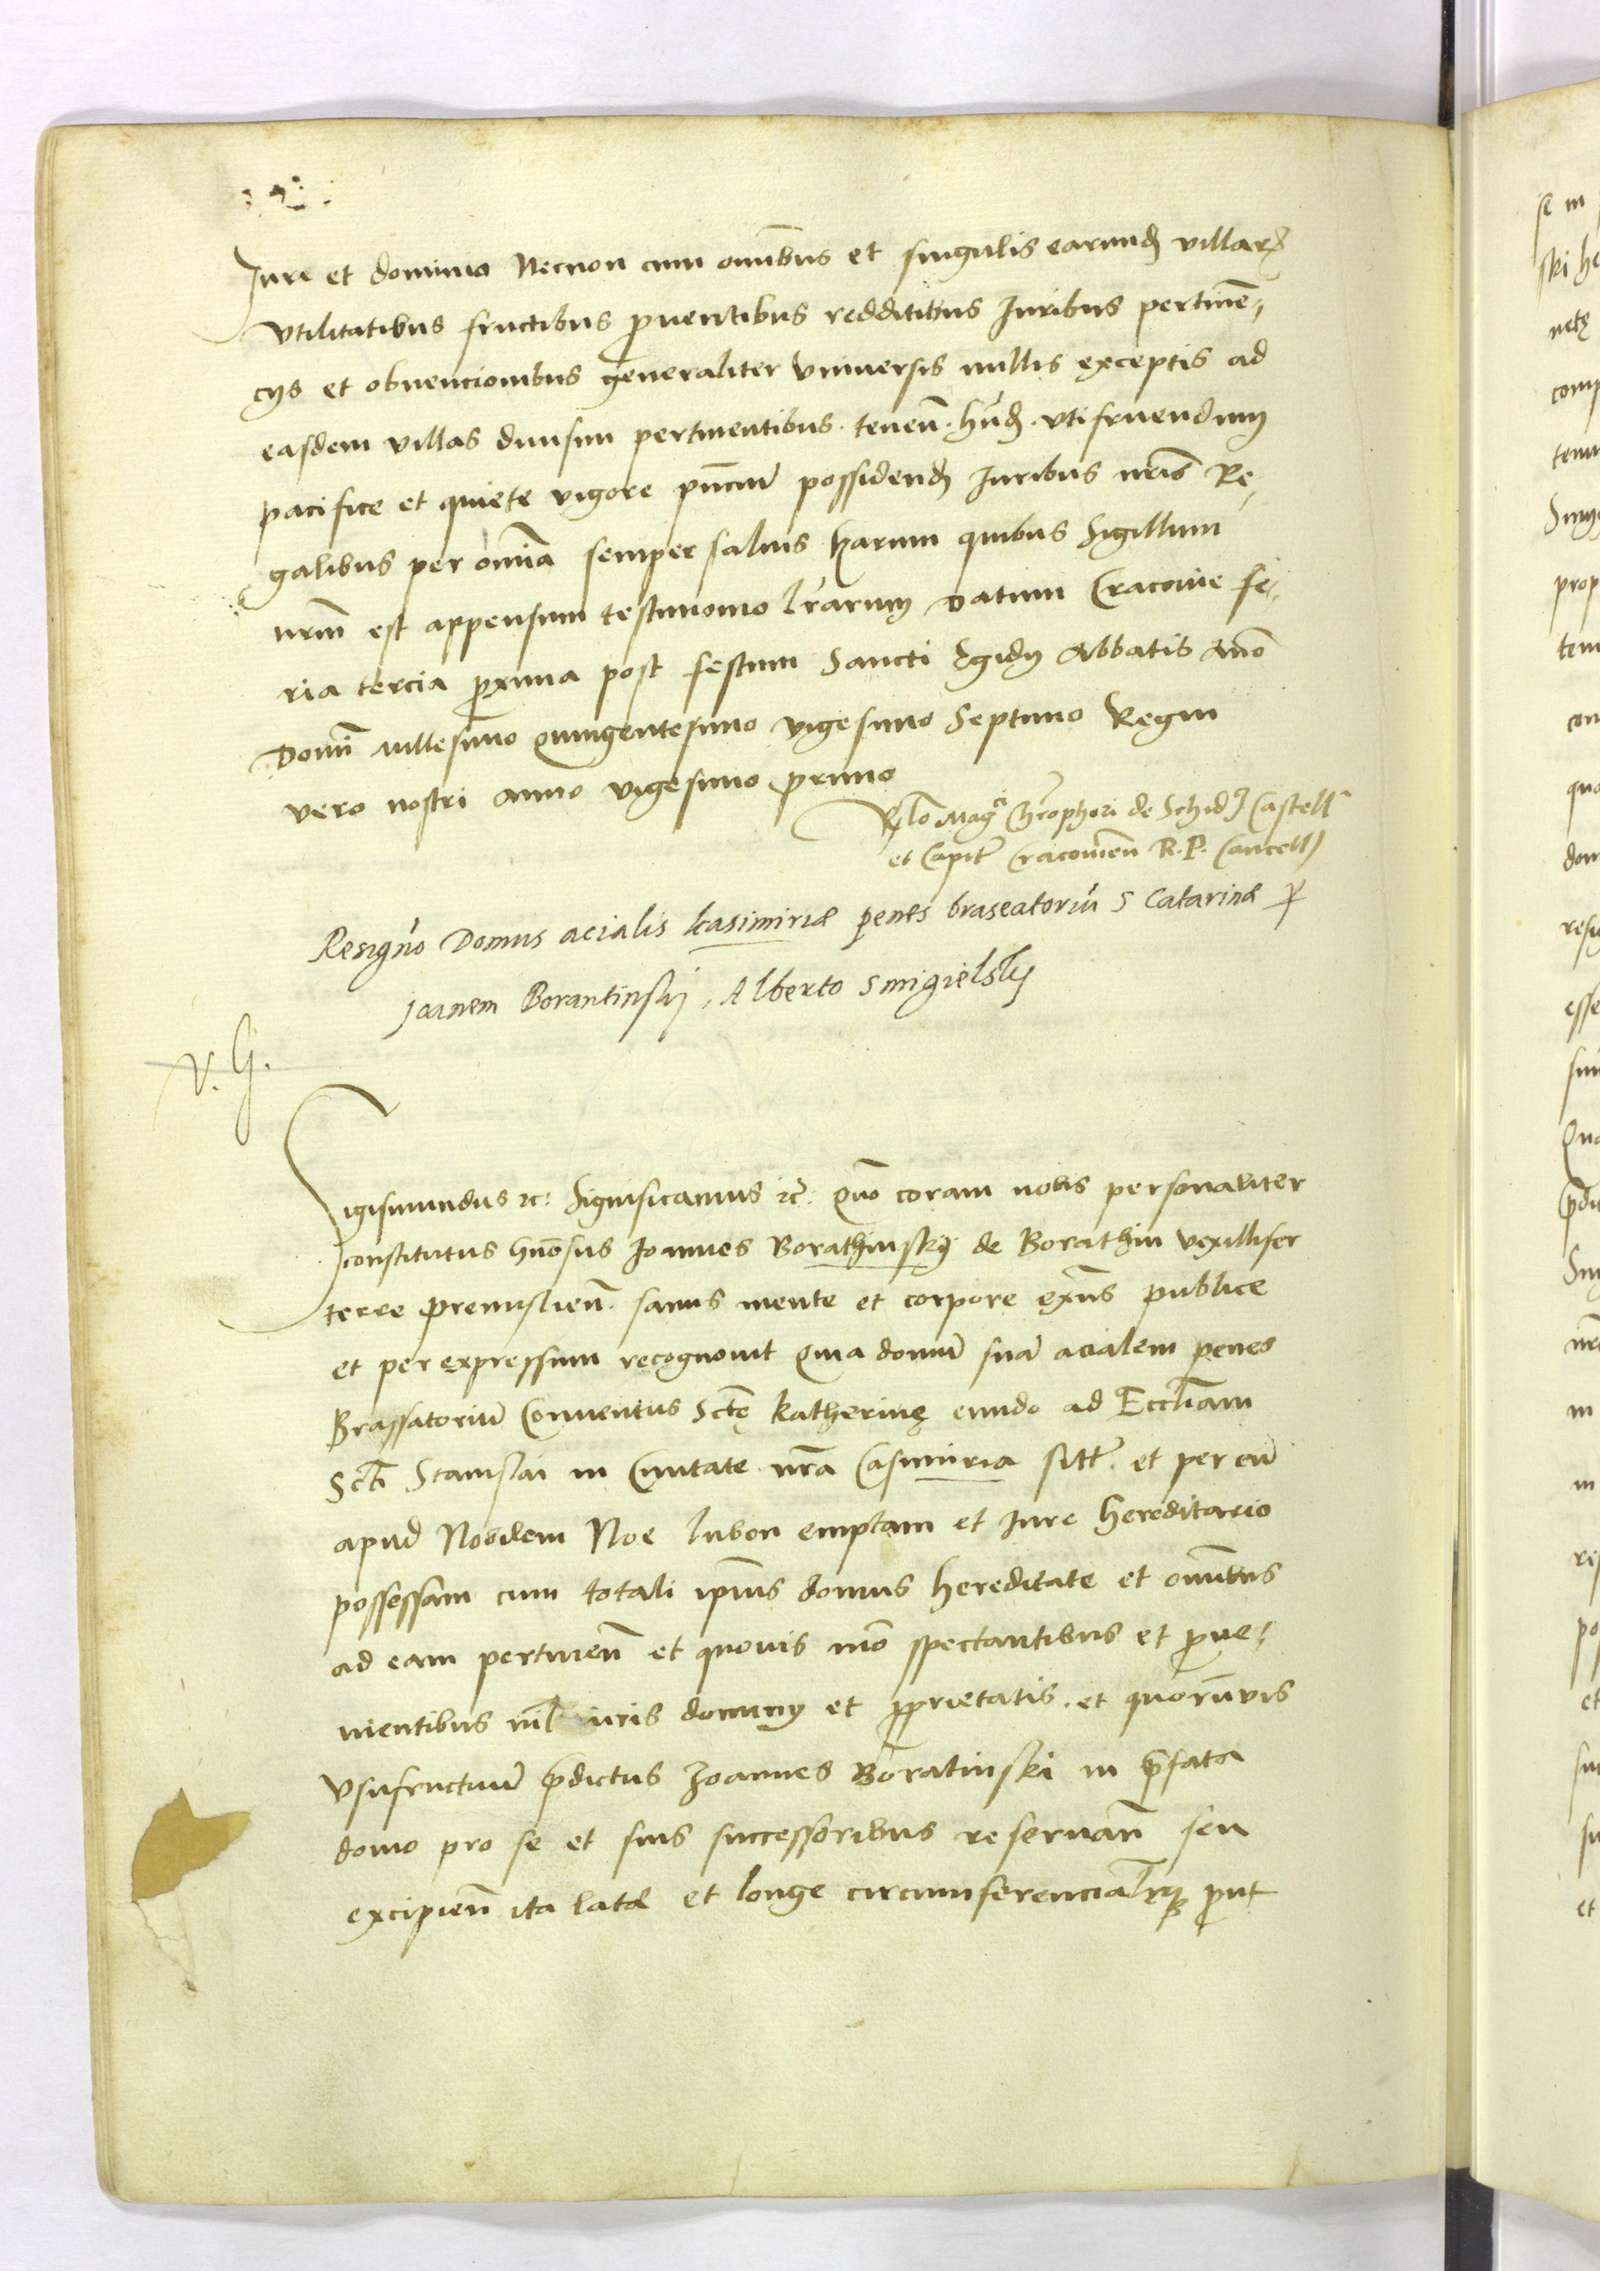 Jure et dominio Necnon cum omnibus et singulis earund villar
Vtilitatibus fructibus pventibus redditibus Juribus pertinen,
cys et obuencionibus generaliter Vniuersis nullis exceptis ad
easdem villas diuisim pertinentibus. tenen. hnd. vtifruendum
pacifice et quiete vigore pncium possidend Juribus nris Re,
galibus per omnia semper saluis harum quibus Sigillum
nrm est appensum testimonio lrarum Datum Cracouie fe,
ria tercia pxima post festum Sancti Egidy Abbatis Anno
Domi Millesimo quingentesimo vigesimo Septimo Regni
vero nostri anno vigesimo primo
Rlo Mag Chrophori de Schid Castell
et Capit Cracouien R. P. Cancell
Resigno Domus acialis kasimiriæ penes braseatoriu S Catarinæ p
Joanem Borantinskij, Alberto Smigielsky
V. G.
Sigismundus zc: Significamus zc: Quo coram nobis personaliter
constitutus hnosus Joannes Borathinsky de Borathin vexillifer
terre Premislien. sanus mente et corpore exns publice
et per expressum recognouit Quia domum sua acialem penes
Brassatorium Conuentus Scte Katherinę eundo ad Eccliam
Scti Stanislai in Ciuitate nra Casimiria sitt. et per eu
apud Nobilem Noe lubon emptam et Jure hereditario
possessam cum totali ipius domus hereditate et omnibus
ad eam pertinen et quouis mo spectantibus et pue,
nientibus nil iuris dominy et pprietatis. et quorumuis
Vsufructuum pdictus Joannes Boratinski in pfata
domo pro se et suis successoribus reseruan seu
excipien ita late et longe circumferencialrq put